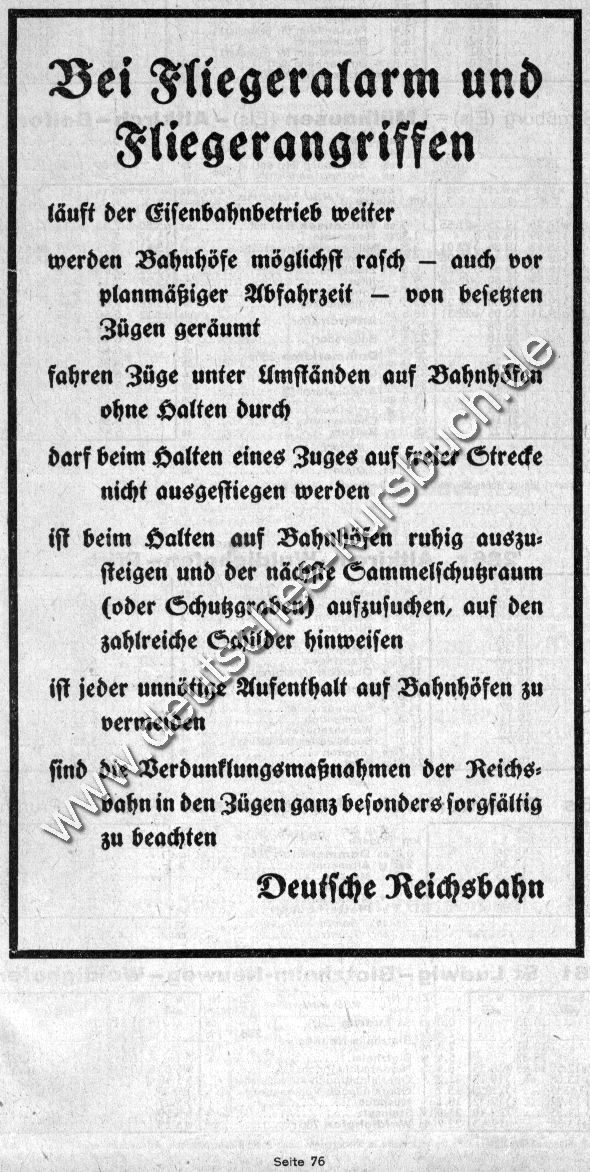 Bei Fliegeralarm und
Fliegerangriffen
läuft der Eisenbahnbetrieb weiter
werden Bahnhöfe möglichst rasch — auch vor
planmäßiger Abfahrzeit — von besetzten
Zügen geräumt
fahren Züge unter Umständen auf Bahnhöfen
ohne Halten durch
darf beim Halten eines Zuges auf freier Strecke
nicht ausgestiegen werden
ist beim Halten auf Bahnhöfen ruhig auszu-
steigen und der nächste Sammelschutzraum
(oder Schutzgraben) aufzusuchen, auf den
zahlreiche Schilder hinweisen
ist jeder unnötige Aufenthalt auf Bahnhöfen zu
vermeiden
sind die Verdunklungsmaßnahmen der Reichs-
bahn in den Zügen ganz besonders sorgfältig
zu beachten
Deutsche Reichsbahn
www.deutsches-kursbuch.de
Seite 76